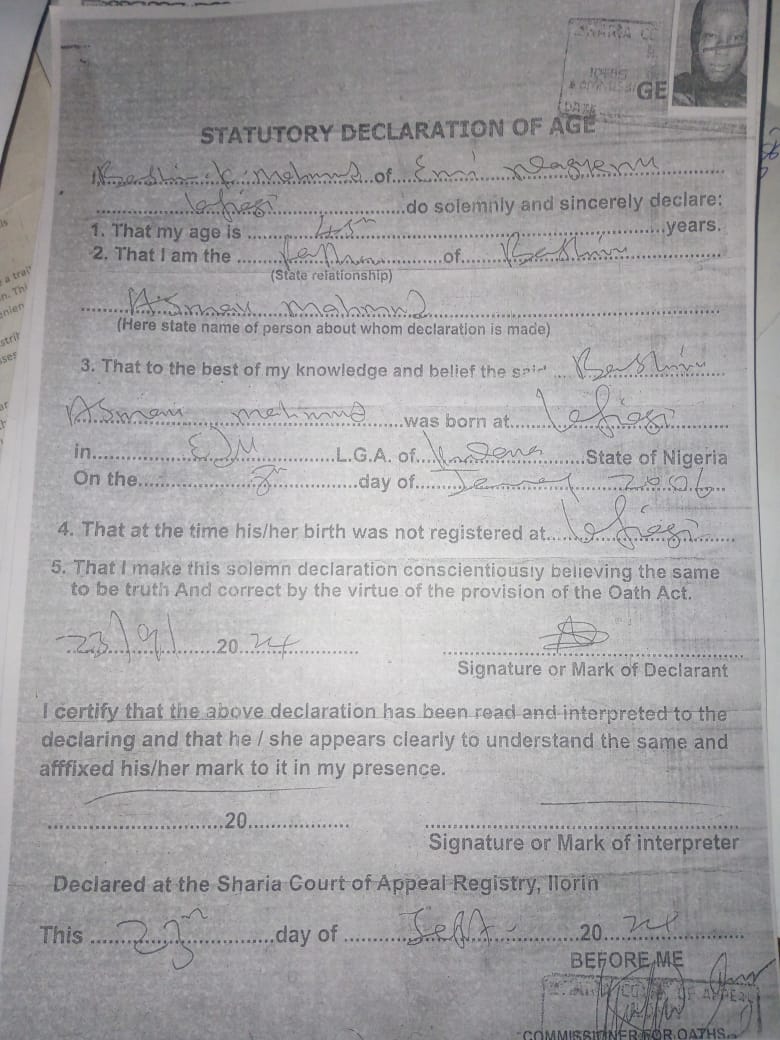 SHARIA CO
DATE
GE
STATUTORY DECLARATION OF AGE
I Bashir K. Mahmud of Emi
Lafiagi do solemnly and sincerely declare:
1. That my age is 45 years.
2. That I am the father of Bashiru
(State relationship)
Asmau Mahmud
(Here state name of person about whom declaration is made)
3. That to the best of my knowledge and belief the said Bashiru
Asmau Mahmud was born at Lafiagi
in EDU L.G.A. of Kwara State of Nigeria
On the 8th day of 2006
4. That at the time his/her birth was not registered at Lafiagi
5. That I make this solemn declaration conscientiously believing the same
to be truth And correct by the virtue of the provision of the Oath Act.
23/9/ 20 24
Signature or Mark of Declarant
I certify that the above declaration has been read and interpreted to the
declaring and that he / she appears clearly to understand the same and
afffixed his/her mark to it in my presence.
20
Signature or Mark of interpreter
Declared at the Sharia Court of Appeal Registry, Ilorin
This 23rd day of Sept. 20 24
BEFORE ME
OF APPEAL
COMMISSIONER FOR OATHS